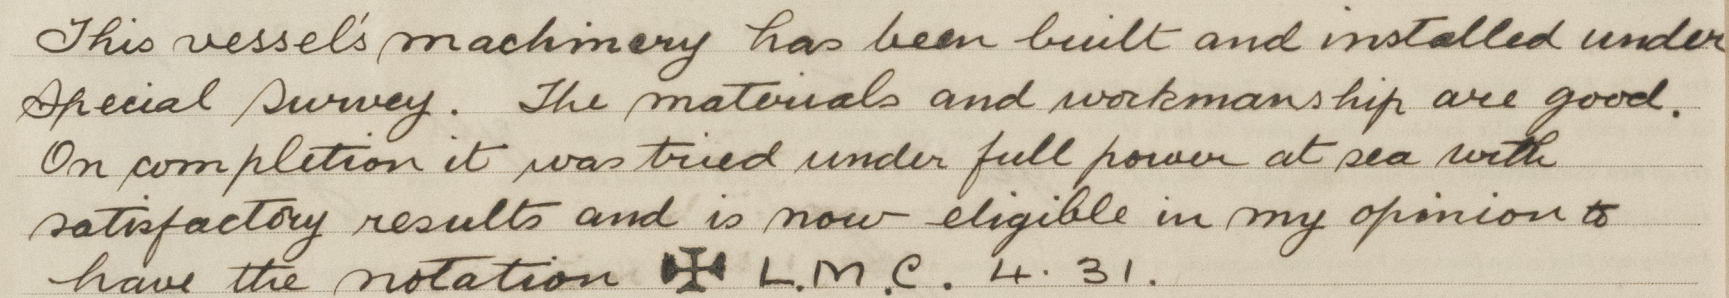 This vessel's machinery has been built and installed under
Special Survey. The materials and workmanship are good.
On completion it was tried under full power at sea with
satisfactory results and is now eligible in my opinion to
have the notation ✠ L.M.C. 4.31.